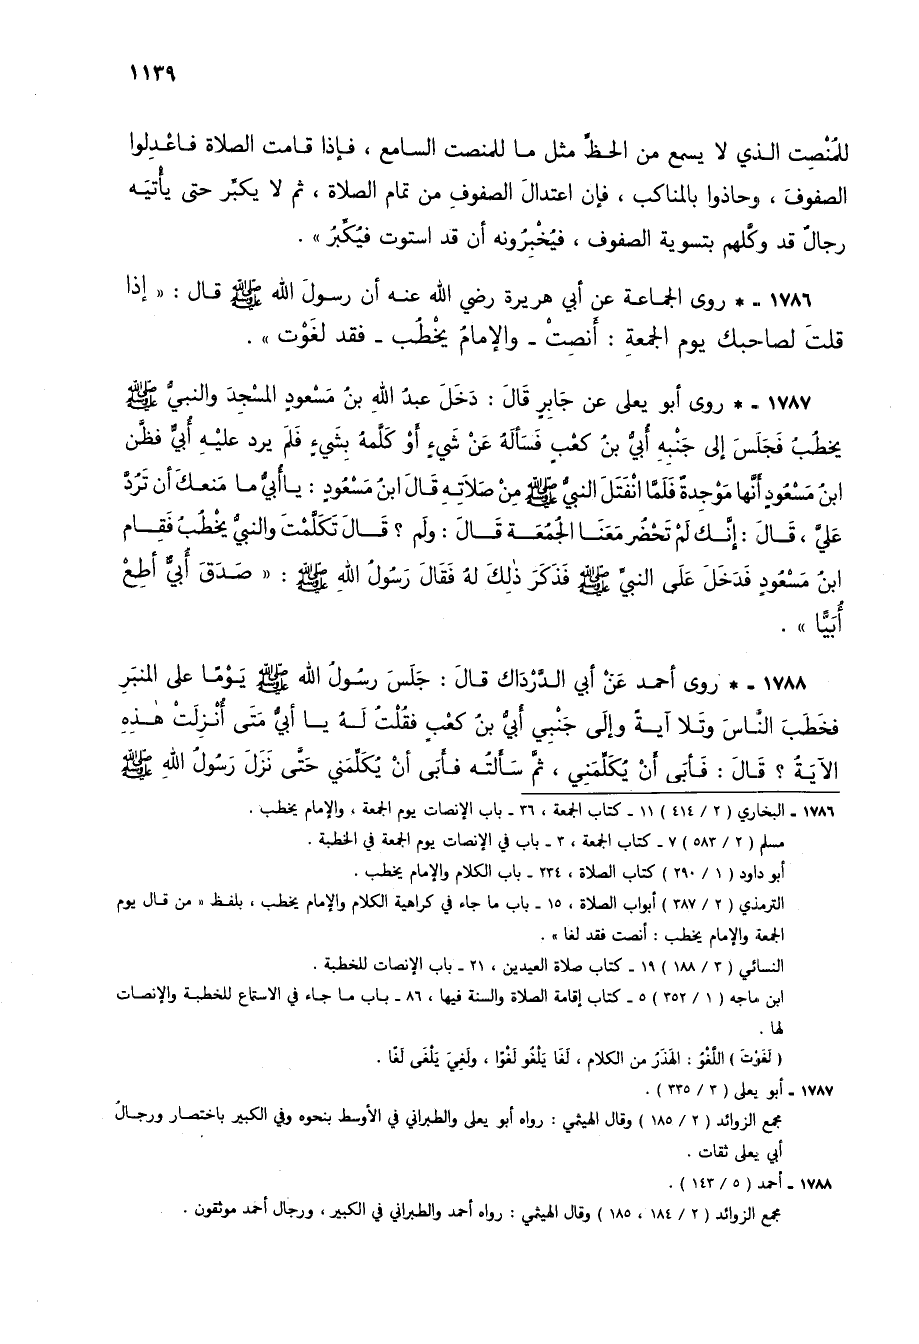 ١١٣٩
للمُنْصِت الـذي لا يسمع من الحظِّ مثل ما للمنصت السامع ، فـإذا قـامت الصلاة فـاعْـدِلوا
الصفوفَ ، وحاذوا بالمناكب ، فإن اعتدالَ الصفوفِ من تمام الصلاة ، ثم لا يكبِّر حتى يأْتيَـه
رجالٌ قد وكَّلهم بتسوية الصفوف ، فيُخْبِرُونه أن قد استوت فيُكَبِّرُ » .
١٧٨٦ ـ * روى الجماعـة عن أبي هريرة رضي الله عنـه أن رسولَ الله ﷺ قـال : « إذا
قلتَ لصاحبك يوم الجمعةِ : أَنصِتْ ـ والإمامُ يخْطُب ـ فقد لغَوْت » .
١٧٨٧ ـ * روى أبو يعلى عن جَابِرٍ قَالَ : دَخَلَ عبدُ اللهِ بنُ مَسْعُودٍ المسْجِدَ والنبيُّ ﷺ
يخطُبُ فَجَلَسَ إلى جَنْبِهِ أُبيُّ بنُ كعْبٍ فَسَألهُ عَنْ شَيءٍ أَوْ كَلَّمهُ بشَيءٍ فَلَم يرد عليْهِ أُبيٌّ فظَن
ابنُ مَسْعُودٍ أَنَّها مَوْجِدةٌ فَلَمَّا انْفَتَلَ النبيُّ ﷺ مِنْ صَلَاتِهِ قَـالَ ابنُ مَسْعُودٍ : يـاأُبيُّ مـا مَنعـكَ أن تَرُدَّ
عليَّ ، قَـالَ : إِنَّـكَ لَمْ تَحْضُر مَعَنَـا الجُمُعَـة قَـالَ : ولَم ؟ قَـالَ تَكَلَّمْتَ والنبيُّ يخْطُبُ فَقَـام
ابنُ مَسْعُودٍ فَدَخَلَ عَلى النبيِّ ﷺ فَذَكَرَ ذٰلِكَ لهُ فَقَالَ رَسُولُ اللهِ ﷺ : « صَـدَقَ أُبيٌّ أطِعْ
أُبَيًّا » .
١٧٨٨ ـ * روى أحمد عَنْ أبي الـدَّرْدَاءِ قـالَ : جَلَسَ رسُولُ اللهِ ﷺ يَـوْمًـا على المنبَرِ
فخَطَبَ النَّاسَ وتَـلا آيـةً وإِلى جَنْبي أُبيُّ بنُ كَعْبٍ فقُلْتُ لَـهُ يـا أُبيُّ مَتَى أُنْـزِلَتْ هٰـذِهِ
الآيَةُ ؟ قَالَ : فَأَبى أَنْ يُكلِّمَني ، ثُمَّ سَأَلتُه فَأَبى أنْ يُكَلِّمَني حَتَّى نَزَلَ رَسُولُ اللهِ ﷺ
١٧٨٦ ـ البخاري ( ٢ / ٤١٤ ) ١١ ـ كتاب الجمعة ، ٣٦ ـ باب الإنصات يوم الجمعة ، والإمام يخطب .
مسلم ( ٢ / ٥٨٣ ) ٧ ـ كتاب الجمعة ، ٣ ـ باب في الإنصات يوم الجمعة في الخطبة .
أبو داود ( ١ / ٢٩٠ ) كتاب الصلاة ، ٢٣٤ ـ باب الكلام والإمام يخطب .
الترمذي ( ٢ / ٣٨٧ ) أبواب الصلاة ، ١٥ ـ باب ما جاء في كراهية الكلام والإمام يخطب ، بلفـظ « من قـال يوم
الجمعة والإمام يخطب : أنصت فقد لغا » .
النسائي ( ٣ / ١٨٨ ) ١٩ ـ كتاب صلاة العيدين ، ٢١ ـ باب الإنصات للخطبة .
ابن ماجه ( ١ / ٣٥٢ ) ٥ ـ كتاب إقامة الصلاة والسنة فيها ، ٨٦ ـ بـاب مـا جـاء في الاستماع للخطبـة والإنصات
لها .
( لَغَوْتَ ) اللَّغْوُ : الهَذَرُ من الكلام ، لَغَا يَلْغُو لَغْوًا ، ولَغِيَ يَلْغَى لَغًا .
١٧٨٧ ـ أبو يعلى ( ٣ / ٣٣٥ ) .
مجمع الزوائد ( ٢ / ١٨٥ ) وقال الهيثمي : رواه أبو يعلى والطبراني في الأوسط بنحوه وفي الكبير باختصار ورجـالُ
أبي يعلى ثقات .
١٧٨٨ ـ أحمد ( ٥ / ١٤٣ ) .
مجمع الزوائد ( ٢ / ١٨٤ ، ١٨٥ ) وقال الهيثمي : رواه أحمد والطبراني في الكبير ، ورجال أحمد موثقون .